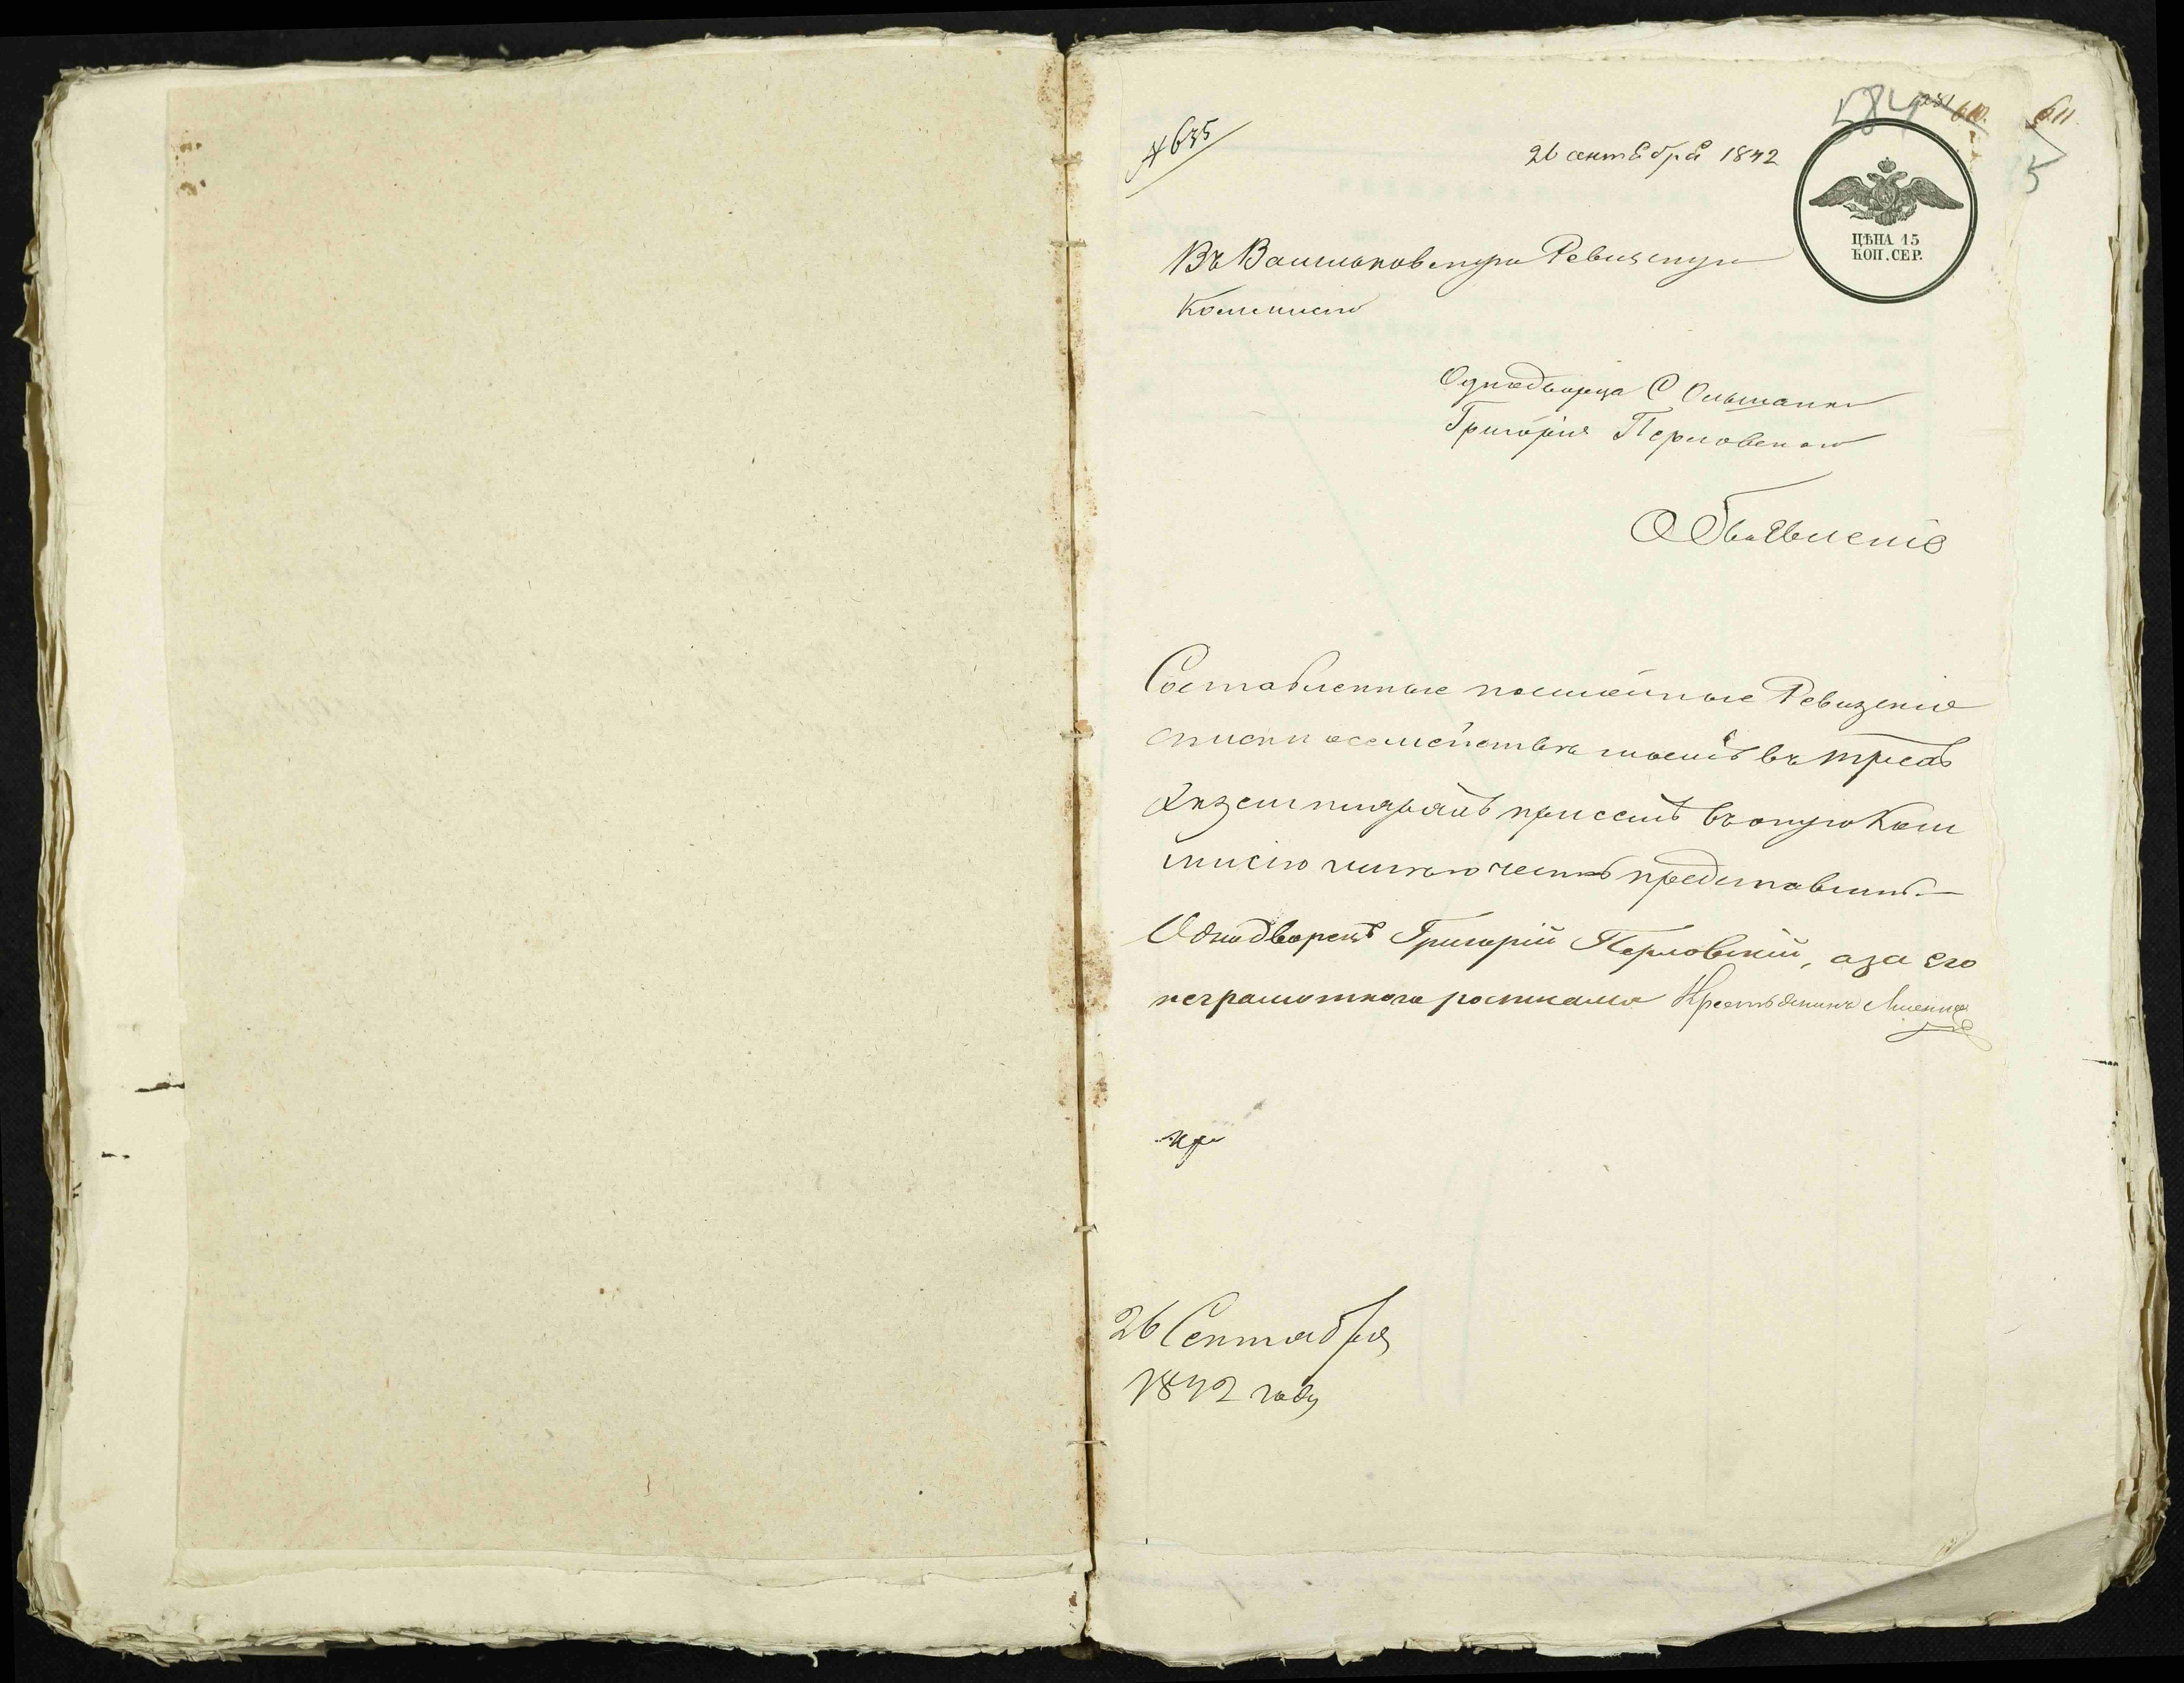 № 635
584 281 610. 611.
5
26 сентября 1842
ЦѢНА 15
КОП. СЕР.
Въ Васильковскую Ревизскую
Коммисію
Однодворца С Ольшанки
Григорія Перловскаго
Объявленіе
Составленные посемейные Ревизскіе
списки о семействѣ моемъ въ трехъ
Экземплярахъ при семъ въ оную Ком
мисію имѣю честь представить.—
Однодворецъ Григорій Перловскій, а за его
неграмотнаго росписался Крестьянинъ
26 Сентября
1842 году